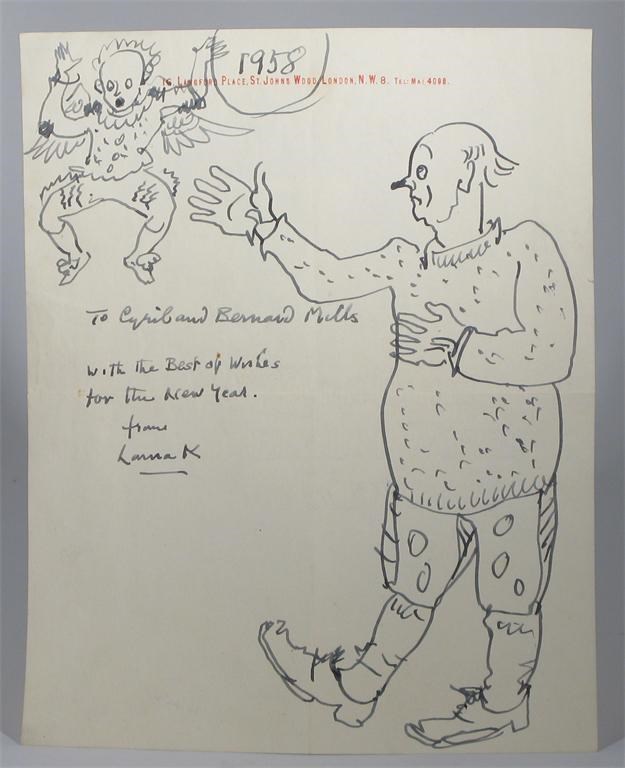 1958
16 LANGFORD PLACE, ST. JOHNS WOOD LONDON, N.W. 8. TEL: MAI. 4098.
To Cyril and Bernard Mills
with the Best of Wishes
for the New Year.
from
Laura K